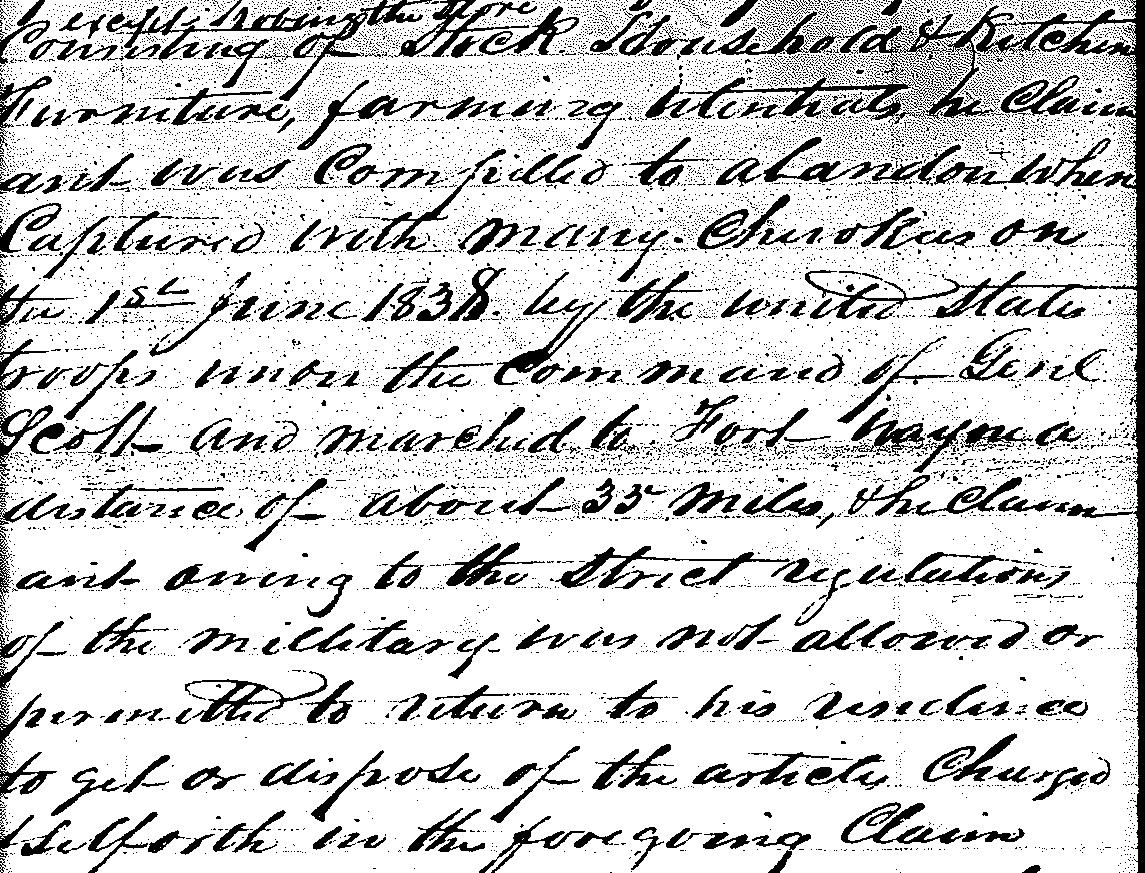 except Robing the store
Consisting of Stock Household & Kitchen
Furniture, farming utentials, he Claim
ant was Compilled to abandon when
Captured with many Cherokees on
the 1st June 1838. by the united States
troops unon the Command of Genl
Scott and marched to Fort Wayne a
distance of about 35 miles, & he Claim
ant owing to the Strict regulations
of the millitary was not allowed or
permitted to return to his residence
to get or dispose of the articles Charged
& Setforth in the foregoing Claim